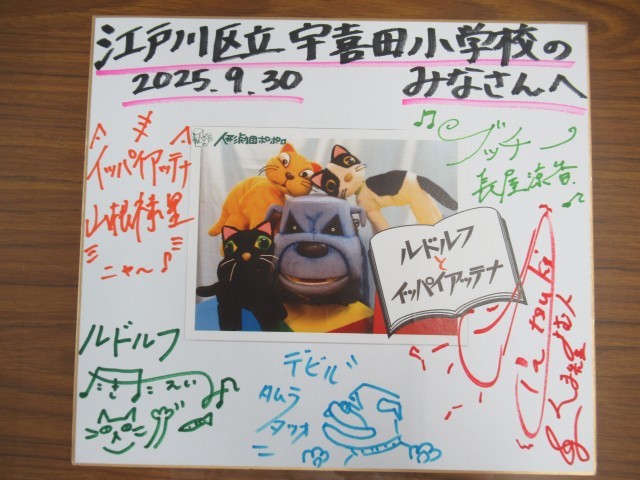 江戸川区立宇喜田小学校の
2025.9.30 みなさんへ
イッパイアッテナ
ニャ〜
人形劇団ポポロ
ブッチー
長屋涼香
ルドルフ
と
イッパイアッテナ
ルドルフ
デビル
タムラ
タツオ